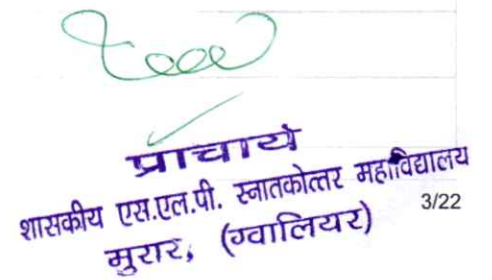 प्राचार्य
शासकीय एस.एल.पी. स्नातकोत्तर महाविद्यालय
3/22
मुरार, (ग्वालियर)